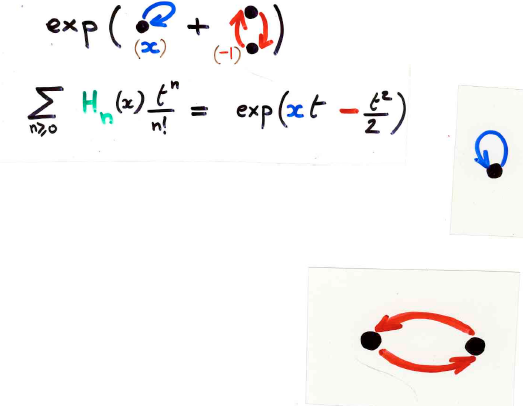 exp ( (x) + (-1) )
∑ n≥0 Hₙ(x) tⁿ/n! = exp(xt - t²/2)